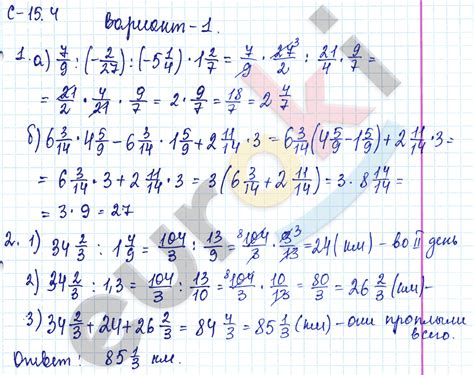 С-15.4 Вариант-1.
1. а) 7/9 : (-2/27) : (-5 1/4) · 1 2/7 = 7/9 · 27³/2 : 21/4 · 9/7 =
= 21/2 · 4/21 · 9/7 = 2 · 9/7 = 18/7 = 2 4/7
б) 6 3/14 · 4 5/9 - 6 3/14 · 1 5/9 + 2 11/14 · 3 = 6 3/14 (4 5/9 - 1 5/9) + 2 11/14 · 3 =
= 6 3/14 · 3 + 2 11/14 · 3 = 3 (6 3/14 + 2 11/14) = 3 · 8 14/14 =
= 3 · 9 = 27
2. 1) 34 2/3 : 1 4/9 = 104/3 : 13/9 = ⁸104/3 · 9³/13 = 24 (км) - во II день
2) 34 2/3 : 1,3 = 104/3 : 13/10 = ⁸104/3 · 10/13 = 80/3 = 26 2/3 (км) -
3) 34 2/3 + 24 + 26 2/3 = 84 4/3 = 85 1/3 (км) - они проплыли
всего.
Ответ: 85 1/3 км.
euroki